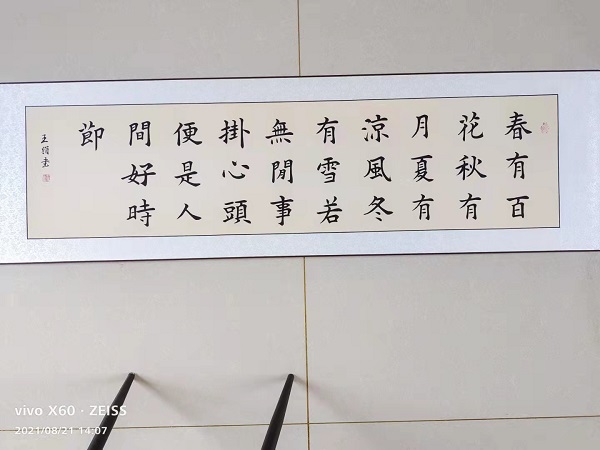 春有百
花秋有
月夏有
涼風冬
有雪若
無閒事
掛心頭
便是人
間好時
節
vivo X60 · ZEISS
2021/08/21 14:07